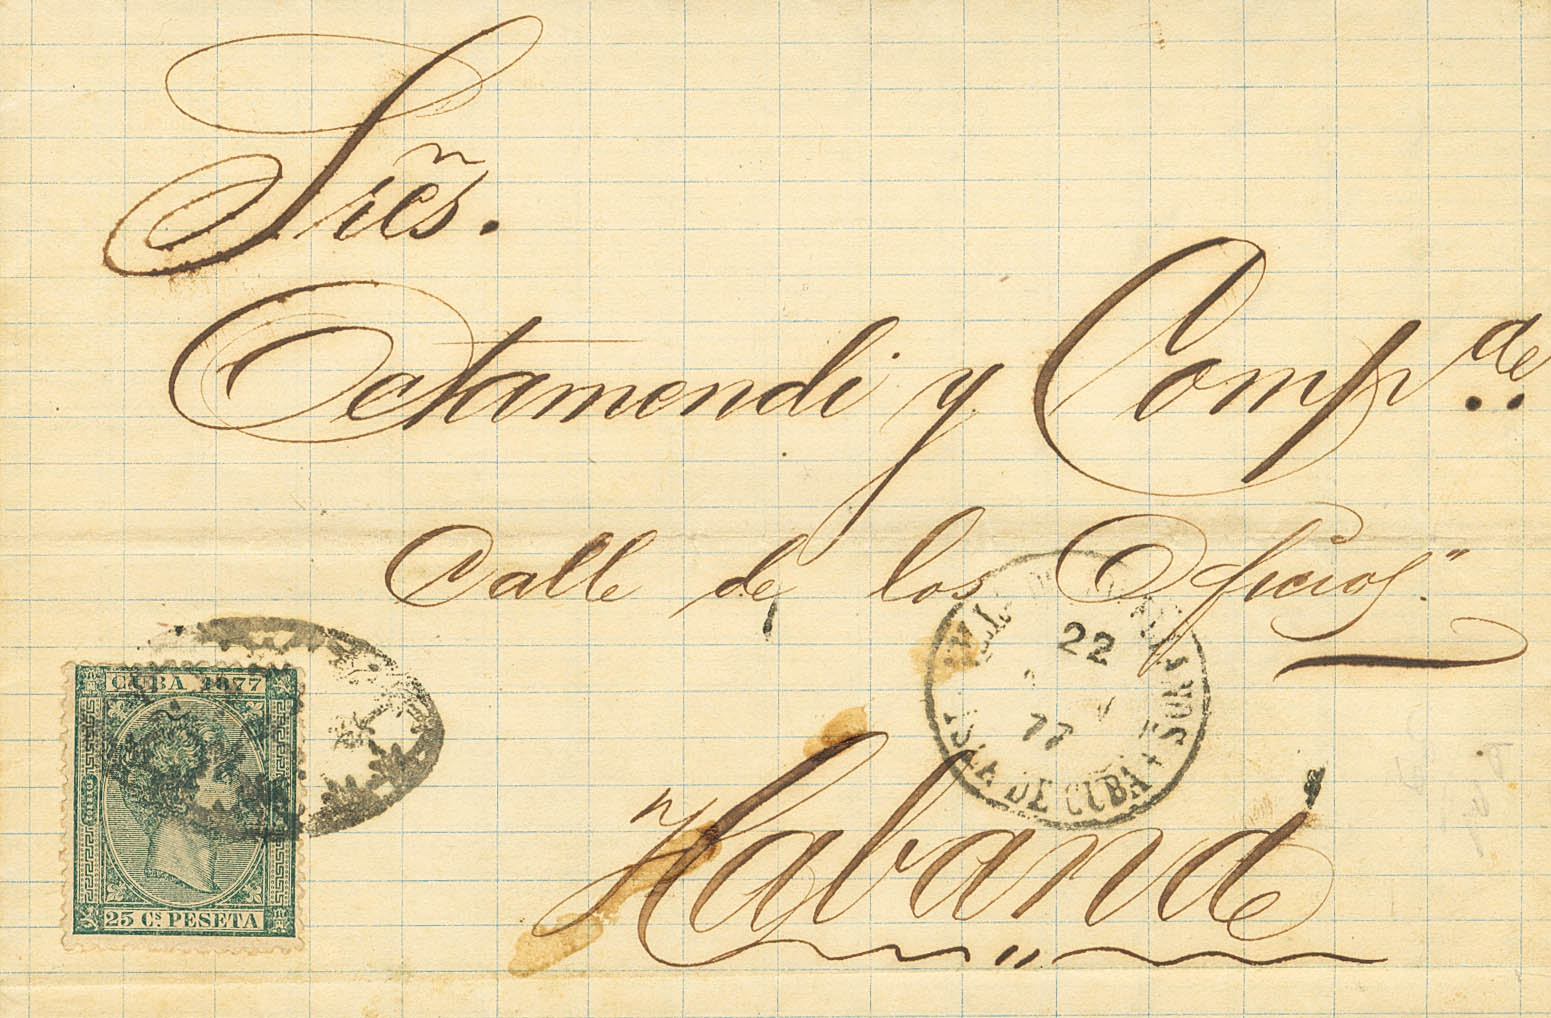 Sres.
Octamendi y Comp.
Calle de los Oficios.
22
77
ISLA DE CUBA
Habana
CUBA 1877
25 Cs. PESETA